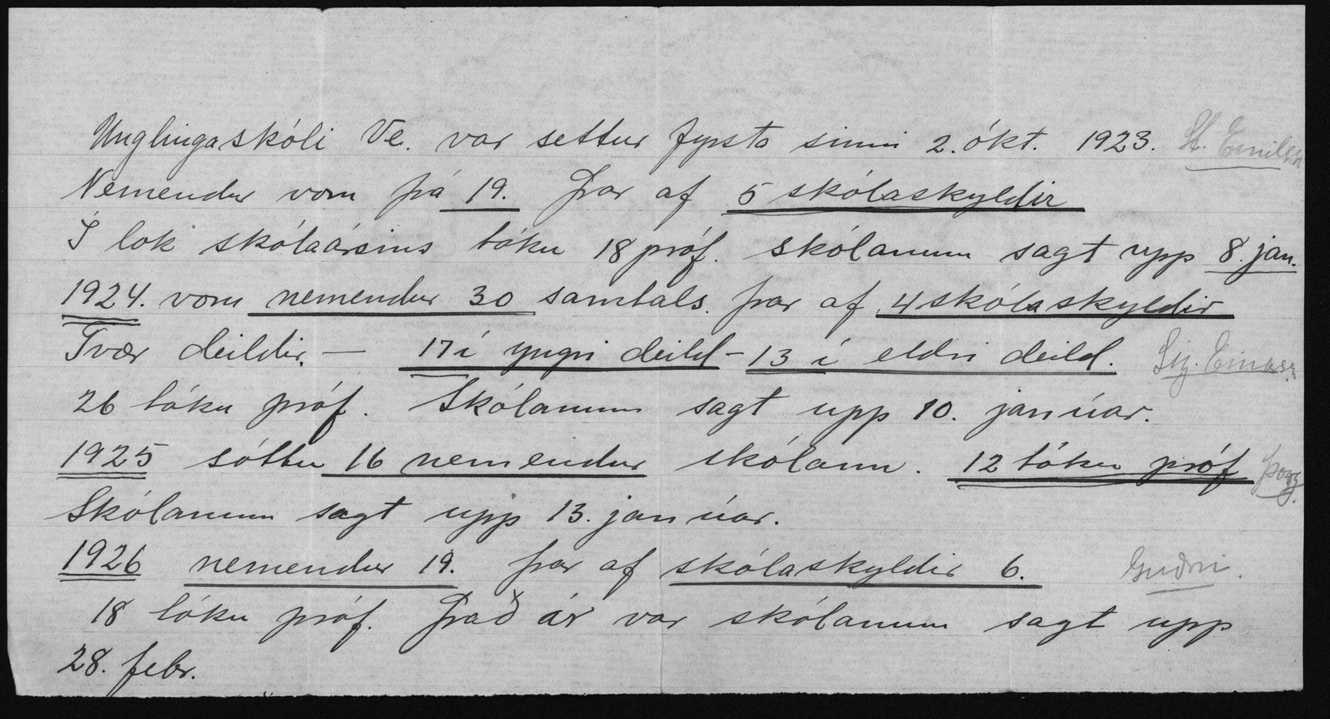 Unglingaskóli Ve. var settur fyrsta sinni 2. ókt. 1923. St. Emilsd
Nemendur voru þá 19. þar af 5 skólaskyldir
Í lok skólaársins tóku 18 próf. skólanum sagt upp 8. jan.
1924. voru nemendur 30 samtals. þar af 4 skólaskyldir
Tvær deildir. — 17 í yngri deild – 13 í eldri deild. Sig. Einarss.
26 tóku próf. Skólanum sagt upp 10. janúar.
1925 sóttu 16 nemendur skólann. 12 tóku próf
Skólanum sagt upp 13. janúar.
1926 nemendur 19. þar af skólaskyldir 6.
18 tóku próf. Það ár var skólanum sagt upp
28. febr.